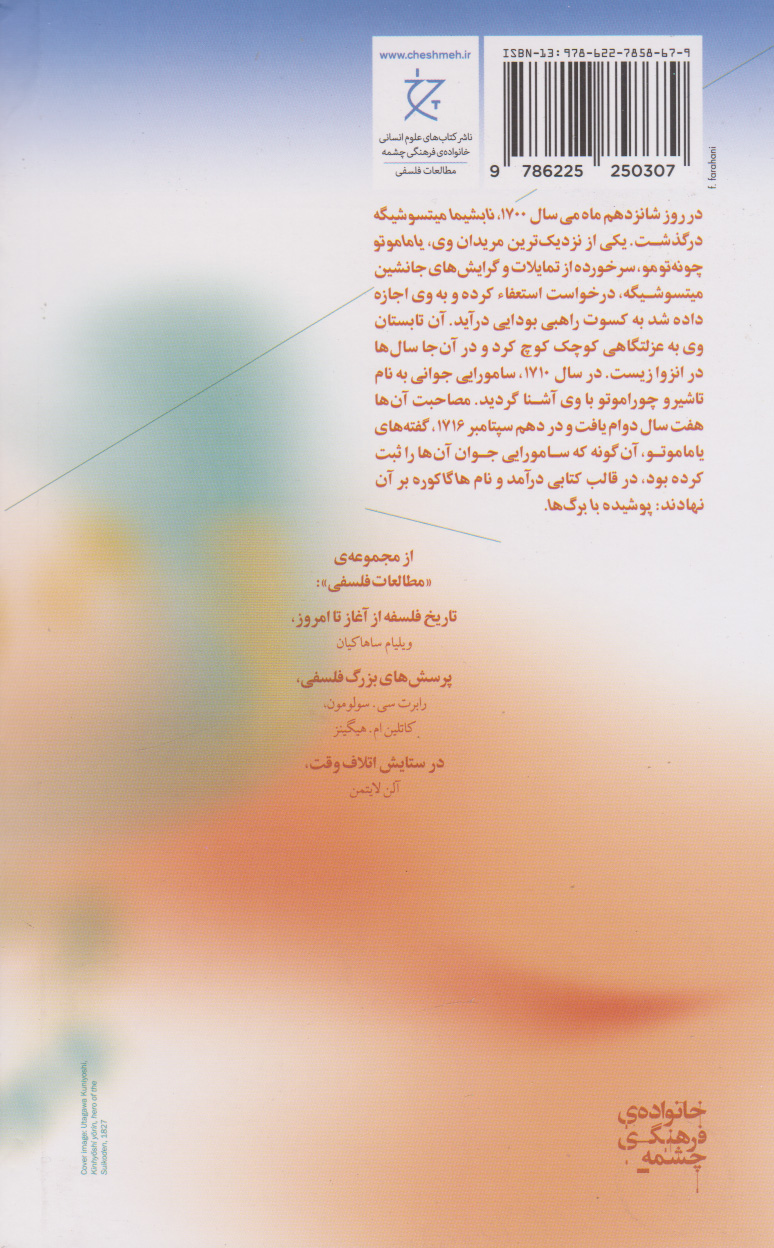 www.cheshmeh.ir
ناشر کتاب‌های علوم انسانی
خانواده‌ی فرهنگی چشمه
مطالعات فلسفی
ISBN-13: 978-622-7858-67-9
9 786225 250307
f. farahani
در روز شانزدهم ماه می سال ۱۷۰۰، نابشیما میتسوشیگه
درگذشت. یکی از نزدیک‌ترین مریدان وی، یاماموتو
چونه‌تومو، سرخورده از تمایلات و گرایش‌های جانشین
میتسوشیگه، درخواست استعفاء کرده و به وی اجازه
داده شد به کسوت راهبی بودایی درآید. آن تابستان
وی به عزلتگاهی کوچک کوچ کرد و در آن‌جا سال‌ها
در انزوا زیست. در سال ۱۷۱۰، سامورایی جوانی به نام
تاشیرو چوراموتو با وی آشنا گردید. مصاحبت آن‌ها
هفت سال دوام یافت و در دهم سپتامبر ۱۷۱۶، گفته‌های
یاماموتو، آن گونه که سامورایی جوان آن‌ها را ثبت
کرده بود، در قالب کتابی درآمد و نام هاگاکوره بر آن
نهادند: پوشیده با برگ‌ها.
از مجموعه‌ی
«مطالعات فلسفی»:
تاریخ فلسفه از آغاز تا امروز،
ویلیام ساهاکیان
پرسش‌های بزرگ فلسفی،
رابرت سی. سولومون،
کاتلین ام. هیگینز
در ستایش اتلاف وقت،
آلن لایتمن
Cover image: Utagawa Kuniyoshi,
Kinhyōshi yōrin, hero of the
Suikoden, 1827
خانواده‌ی
فرهنگی
چشمه